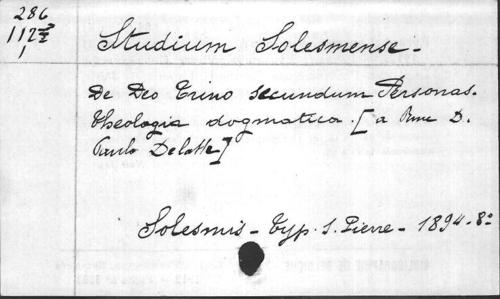 286
112²
1
Studium Solesmense -
De Deo Trino secundum Personas.
Theologia dogmatica. [a Rme D.
Paulo Delatte]
Solesmis - Typ. S. Pierre - 1894 - 8º